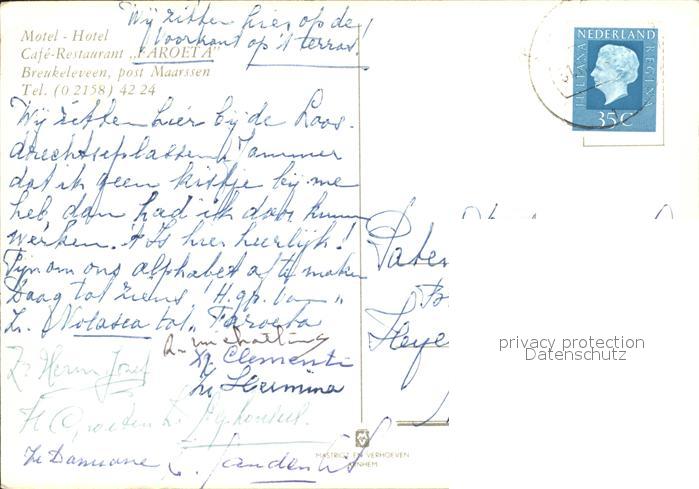 Wij zitten hier op de
Voorkant op 't terras!
Motel - Hotel
Café-Restaurant „FAROETA"
Breukeleveen, post Maarssen
Tel. (0 2158) 42 24
NEDERLAND
JULIANA REGINA
35C
Wij zitten hier bij de Loos-
drechtseplassen Jammer
dat ik geen kistje bij me
heb dan had ik door kunnen
werken. 't Is hier heerlijk!
Fijn om ons alphabet af te maken
Daag tot ziens! H.gr. van
Zr. Nolasca tot „Faroeta
Pater
Heye
Zr. Clementi
Zr. Hermina
Zr. Herm Jozef
H Groeten Zr.
Zr Damiane Zr.
privacy protection
Datenschutz
MASTRIGT EN VERHOEVEN
ARNHEM